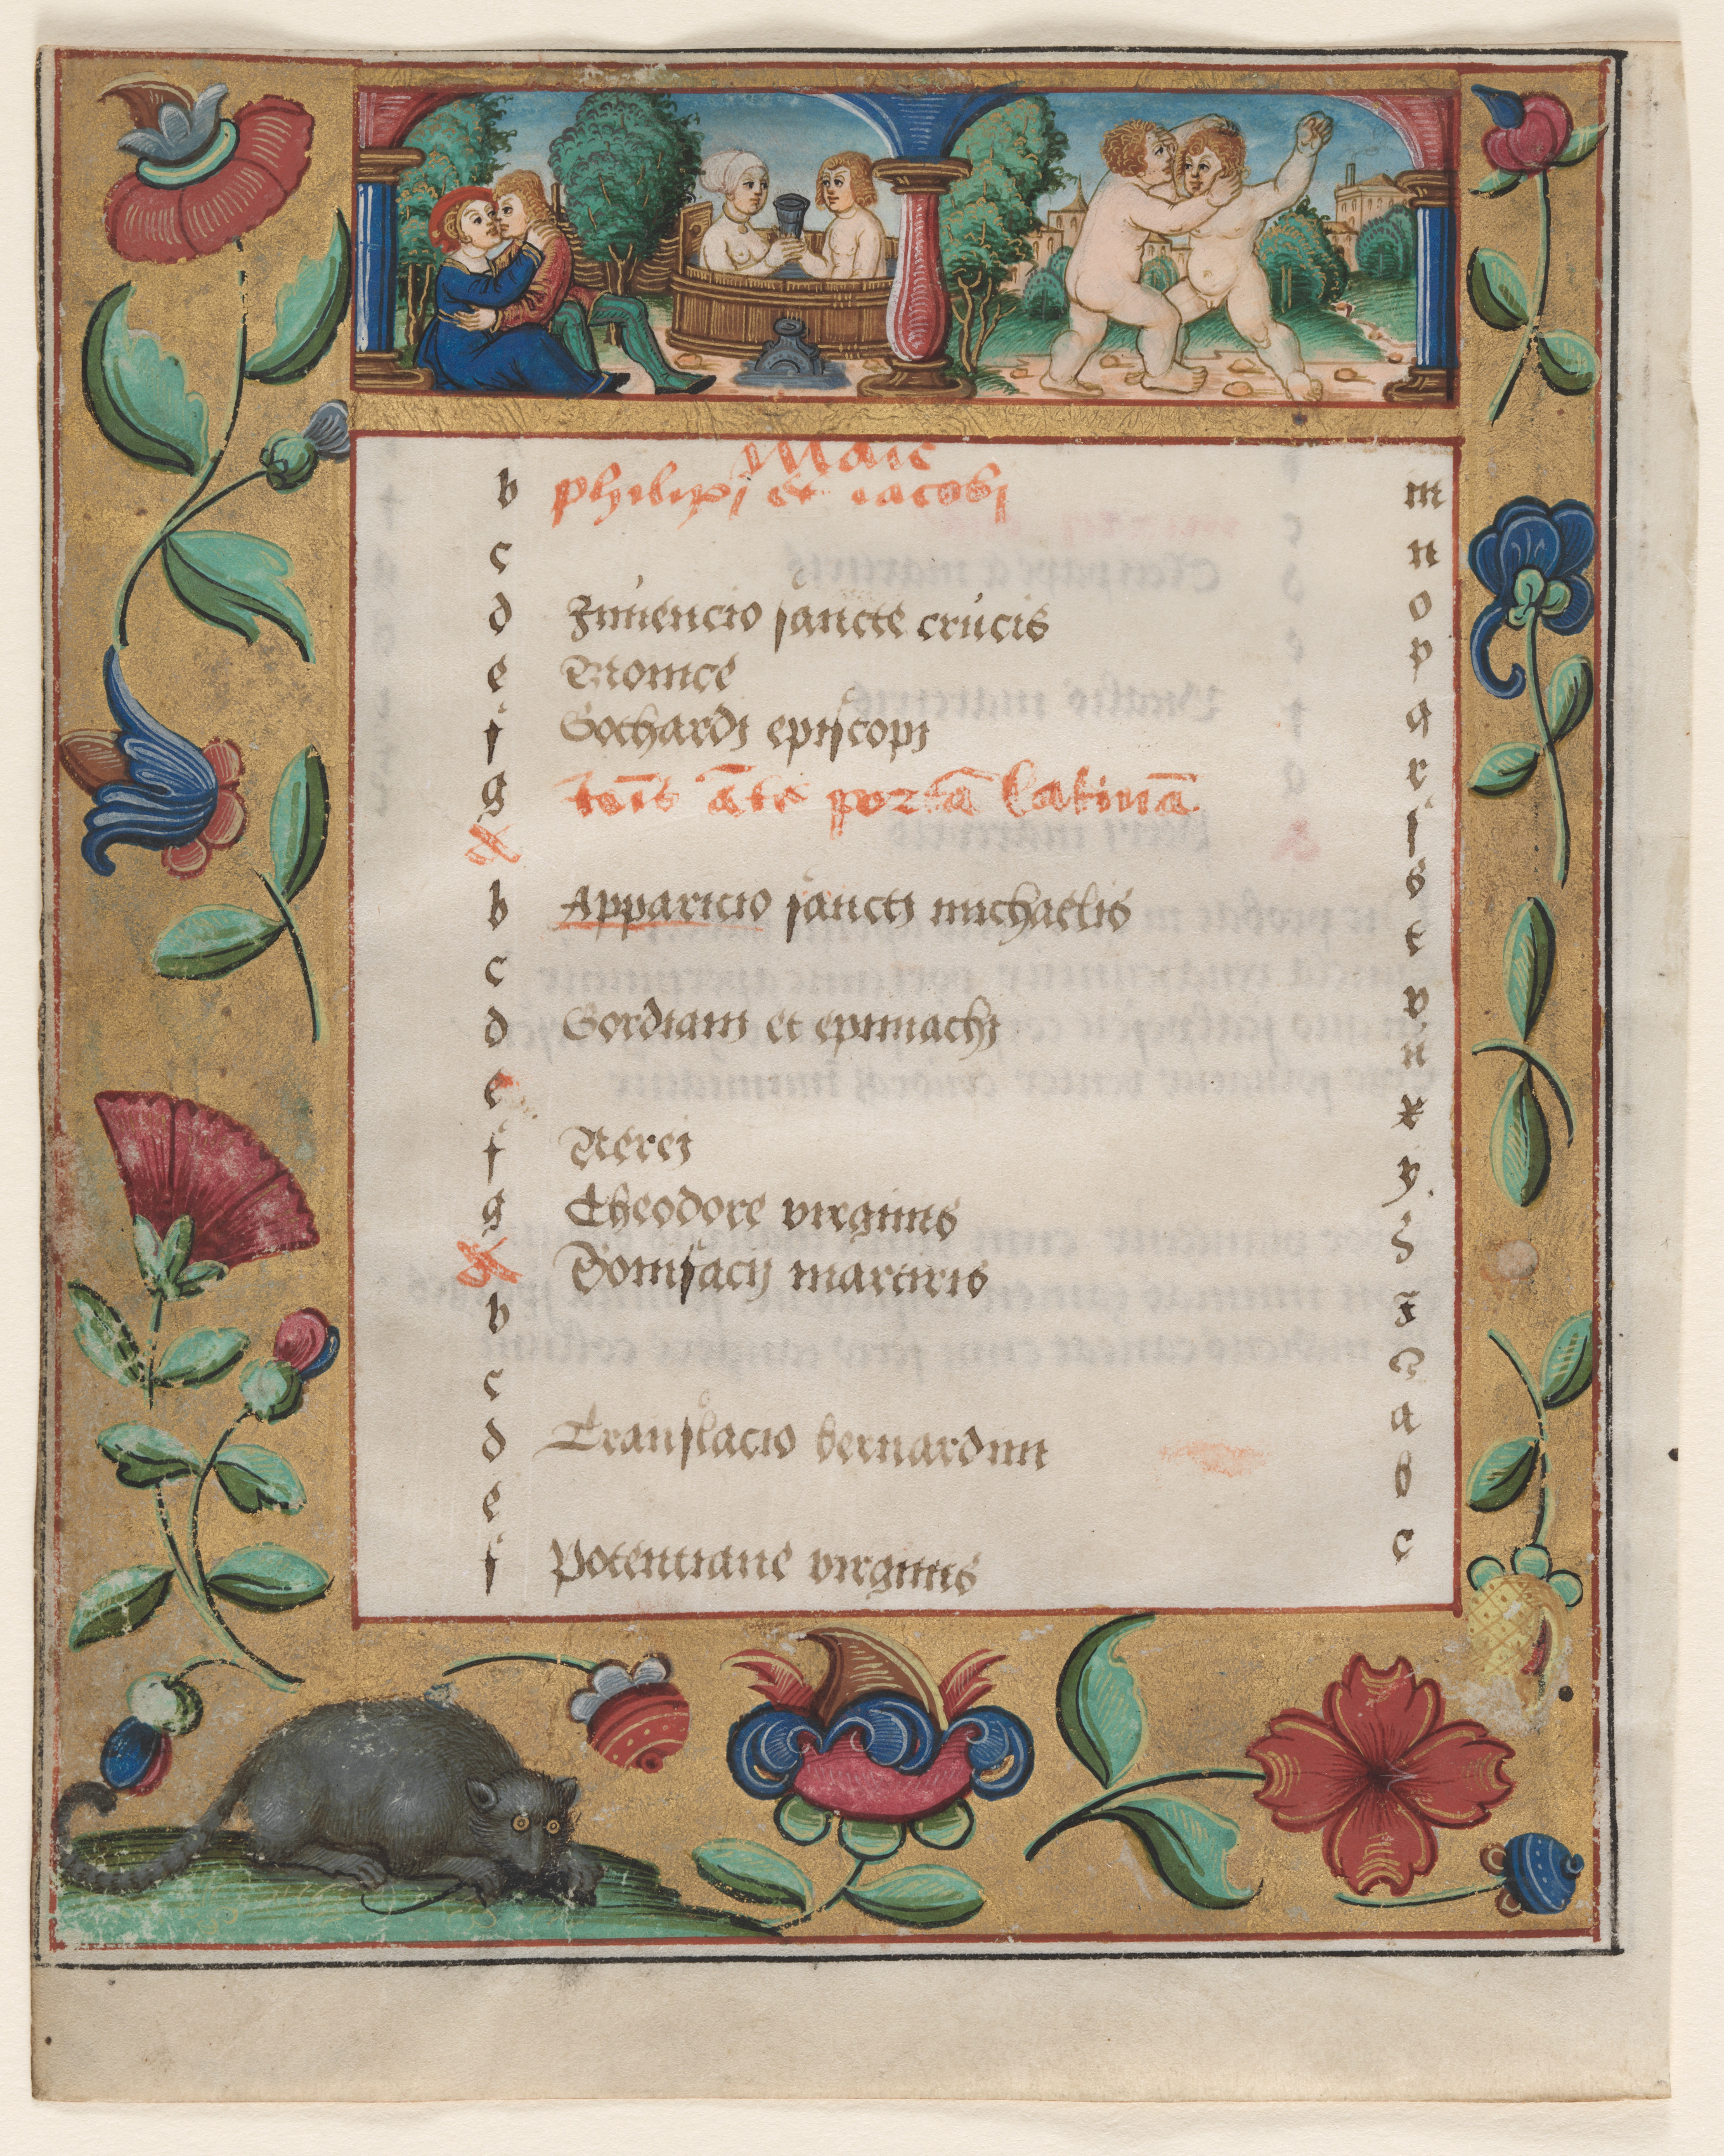 Maie
b philippi et iacobi m
c n
d Inuencio sancte crucis o
e Monice p
f Gothardi episcopi q
g Iohis āte portā latinā r
A ſ
b Apparicio sancti michaelis s
c t
d Gordiani et epimachi v
e u
f Nerei x
g Theodore virginis y
A Bonifacij martiris z
b
c
d Translacio bernardini a
e b
f Potentiane virginis c